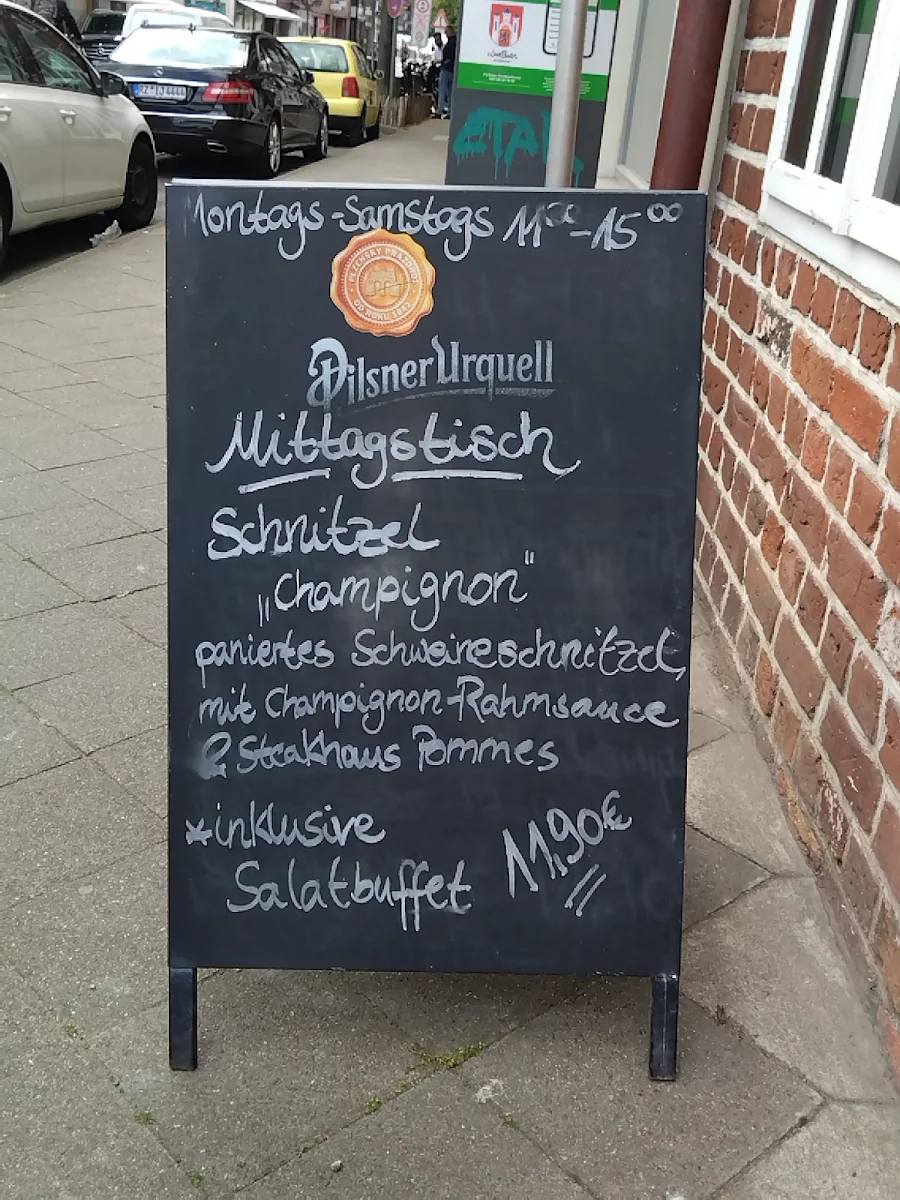 RZ IJ 4444
ETA
Montags-Samstags 11⁰⁰-15⁰⁰
PLZEŇSKÝ PRAZDROJ
OD ROKU 1842
Pilsner Urquell
Mittagstisch
Schnitzel
„Champignon"
paniertes Schweineschnitzel,
mit Champignon-Rahmsauce
& Steakhaus Pommes
*inklusive
Salatbuffet 11,90€